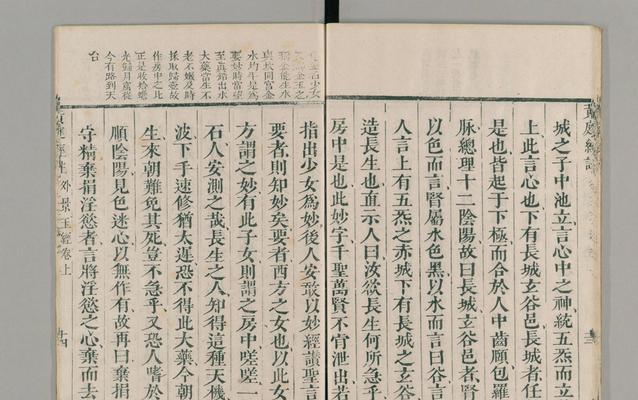 黃庭經註
城之子中池立言心中之神統五炁而立
上此言心也下有長城玄谷邑長城者任
是也皆起于下極而合於人中齒頤包羅
脉總理十二陰陽故曰長城玄谷邑者腎
以色而言腎屬水色黑以水而言曰谷言
人言上有五炁之赤城下有長城之玄谷
造長生也直示人曰汝欲長生何所急乎
房中是也此妙字千聖萬賢不肯泄出若
少女
玉之
能生水
與坎同宮金
水均平是爲
要妙時當望
至眞鉛出水
大藥當生不
老不嫰及時
採取歸壺故
作房中之比
正是收拾蟾
光歸月窟從
今有路到天
台
指出少女爲妙後人安敢以妙經讃聖言
要者則知妙矣要者西方之女也以此女
方謂之妙有此子女則謂之房中嗟嗟一
石人安測之哉長生之人知得這種天機
波下手速修猶太遲恐不得此大藥今朝
生來朝難免其死豈不急乎又恐人嗜於
順陰陽見色迷心以無作有故再曰棄捐
守精棄捐淫慾者言將淫慾之心棄而去
黃庭經註 外景玉經卷上 十四